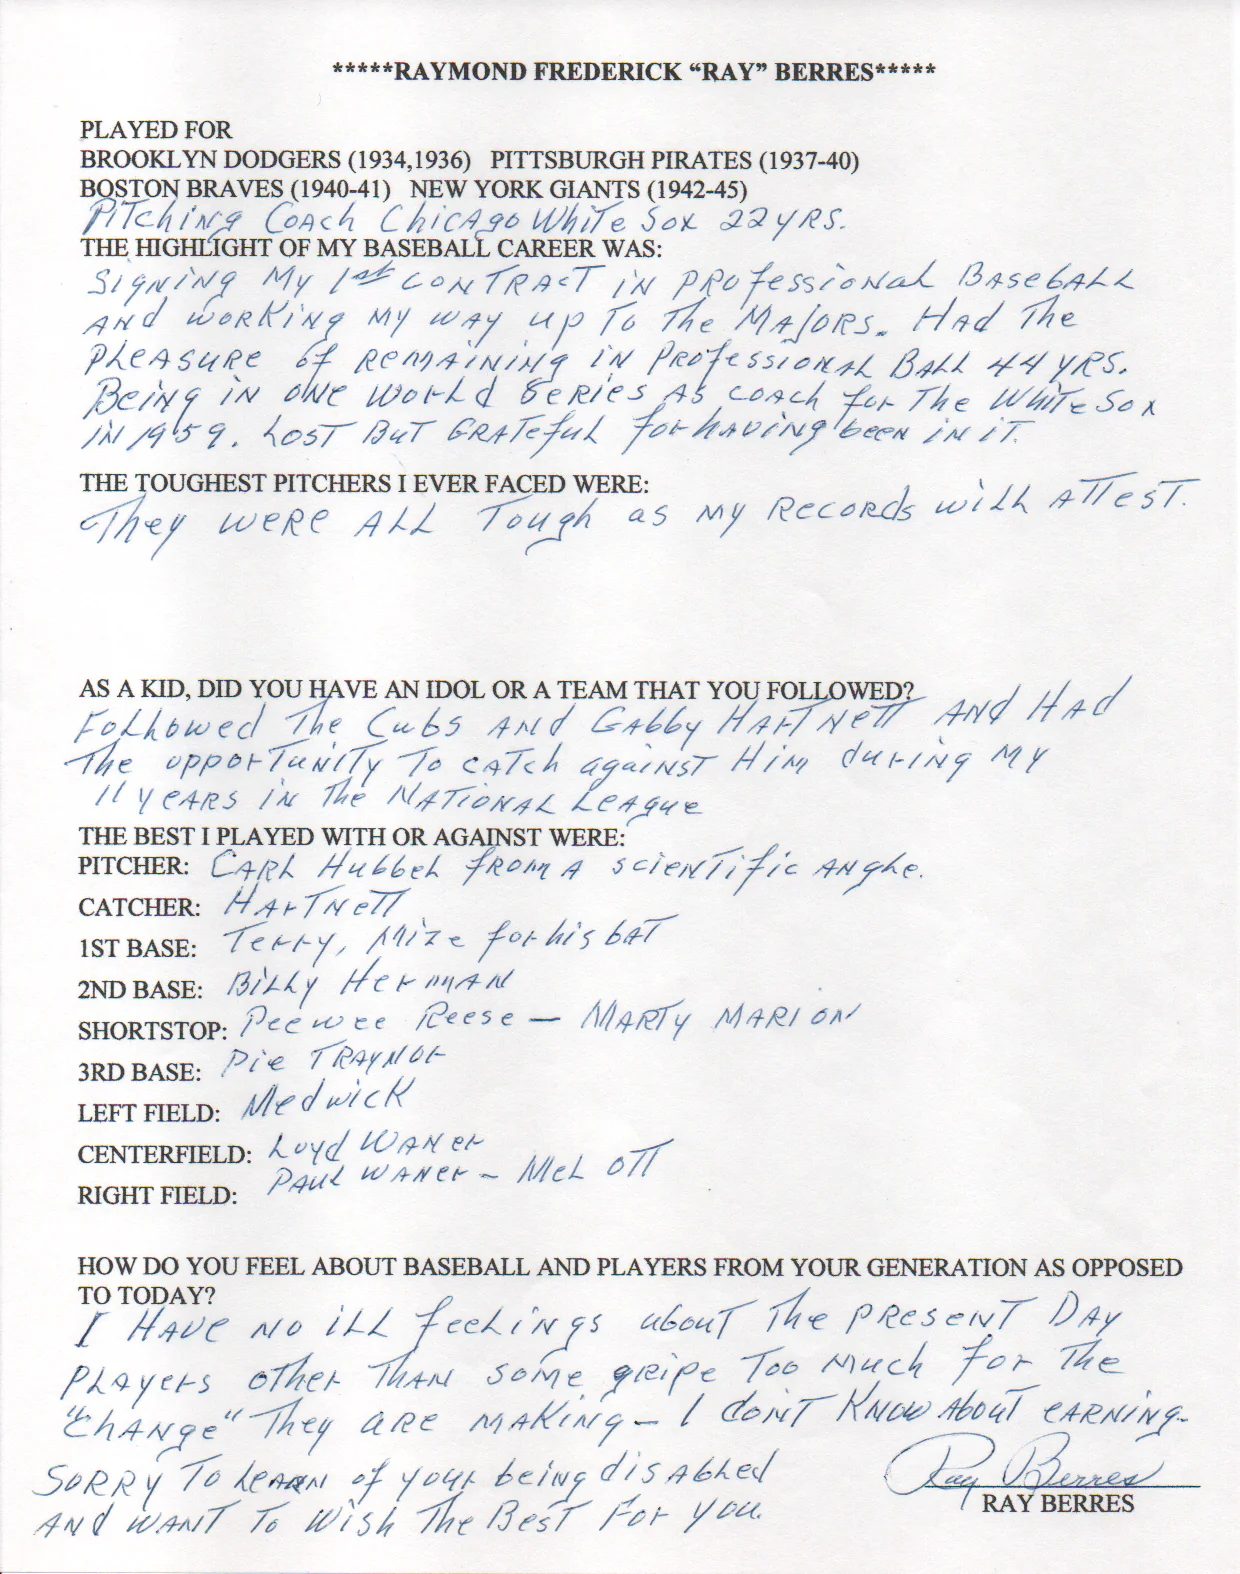 *****RAYMOND FREDERICK “RAY” BERRES*****
PLAYED FOR
BROOKLYN DODGERS (1934,1936) PITTSBURGH PIRATES (1937-40)
BOSTON BRAVES (1940-41) NEW YORK GIANTS (1942-45)
Pitching Coach Chicago White Sox 22 yrs.
THE HIGHLIGHT OF MY BASEBALL CAREER WAS:
Signing my 1st contract in professional Baseball
and working my way up to the Majors. Had the
pleasure of remaining in professional Ball 44 yrs.
Being in one World Series as coach for the White Sox
in 1959. Lost but grateful for having been in it.
THE TOUGHEST PITCHERS I EVER FACED WERE:
They were all tough as my records will attest.
AS A KID, DID YOU HAVE AN IDOL OR A TEAM THAT YOU FOLLOWED?
Followed the Cubs and Gabby Hartnett and had
the opportunity to catch against him during my
11 years in the National League
THE BEST I PLAYED WITH OR AGAINST WERE:
PITCHER: Carl Hubbel from a scientific angle.
CATCHER: Hartnett
1ST BASE: Terry, Mize for his bat
2ND BASE: Billy Herman
SHORTSTOP: Peewee Reese – Marty Marion
3RD BASE: Pie Traynor
LEFT FIELD: Medwick
CENTERFIELD: Loyd Waner
RIGHT FIELD: Paul Waner – Mel Ott
HOW DO YOU FEEL ABOUT BASEBALL AND PLAYERS FROM YOUR GENERATION AS OPPOSED
TO TODAY?
I have no ill feelings about the present day
players other than some gripe too much for the
"change" they are making – I don't know about earning.
Sorry to learn of your being disabled
and want to wish the best for you.
Ray Berres
RAY BERRES